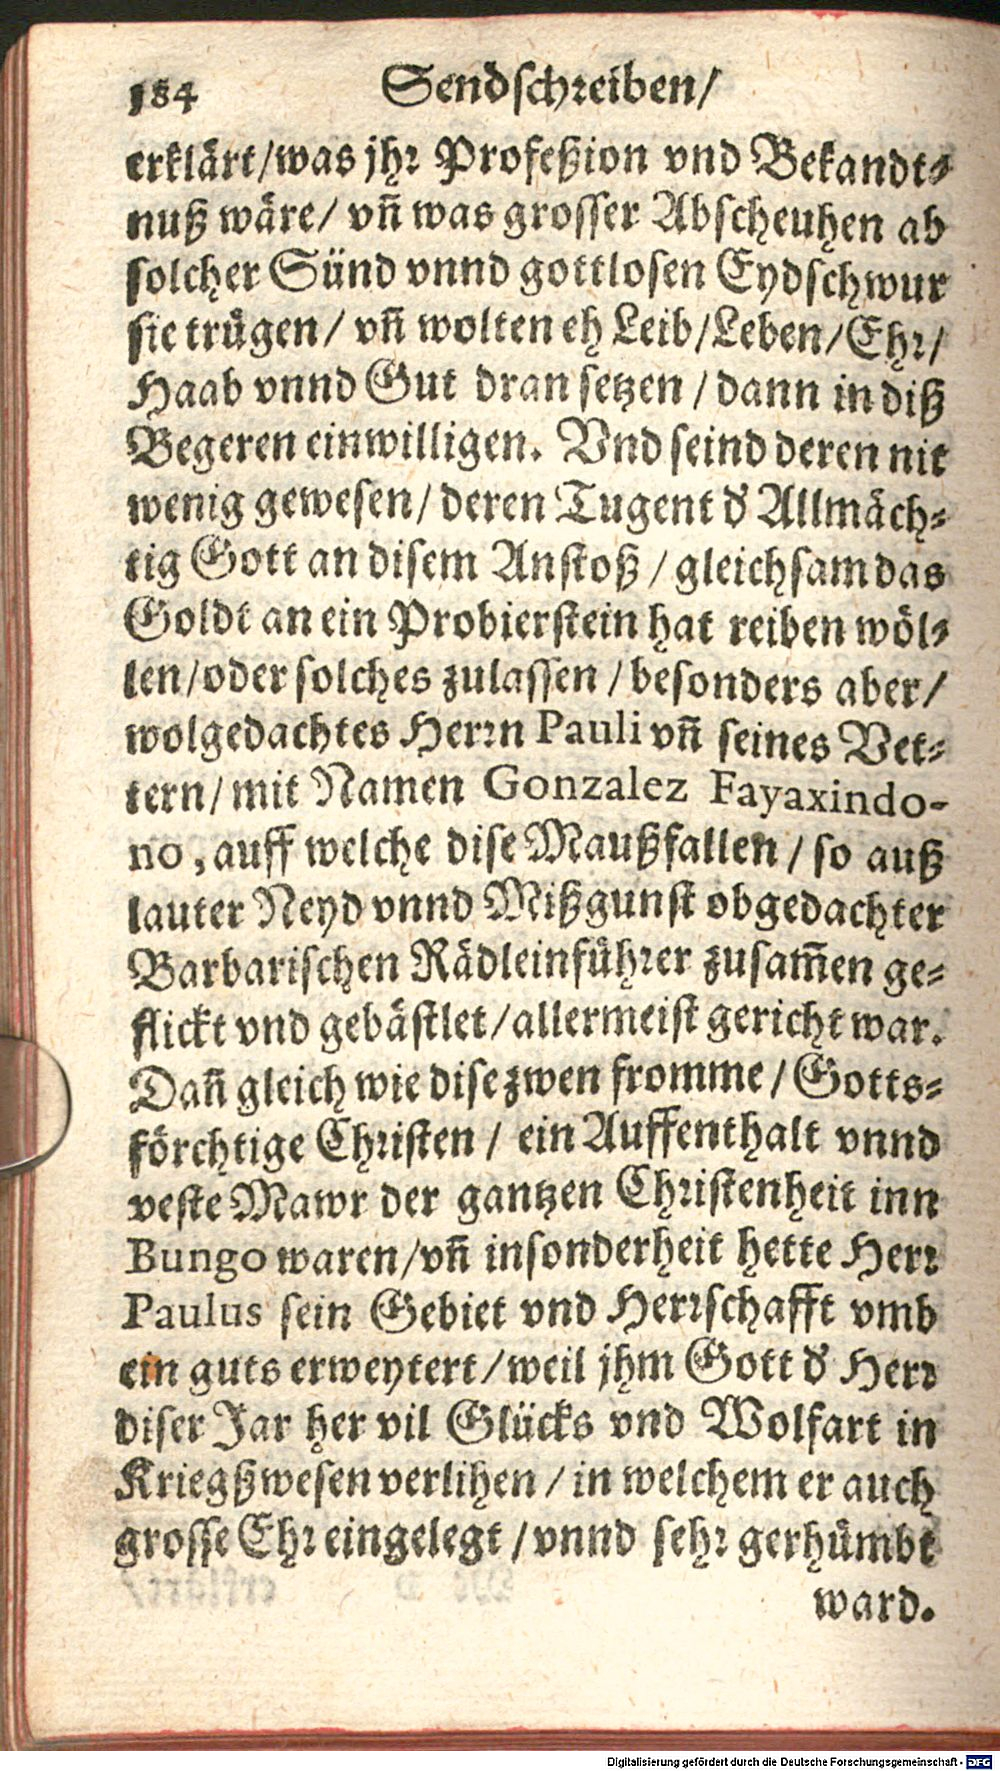 184 Sendschreiben/
erklärt/was jhr Profeßion vnd Bekandt⸗
nuß wäre/ vn̄ was grosser Abscheuhen ab
solcher Sünd vnnd gottlosen Eydschwur
sie trůgen/ vn̄ wolten eh Leib/Leben/Ehr/
Haab vnnd Gut dran setzen / dann in diß
Begeren einwilligen. Vnd seind deren nit
wenig gewesen/ deren Tugent d' Allmäch⸗
tig Gott an disem Anstoß / gleichsam das
Goldt an ein Probierstein hat reiben wöl⸗
len/oder solches zulassen / besonders aber/
wolgedachtes Herrn Pauli vn̄ seines Vet⸗
tern/ mit Namen Gonzalez Fayaxindo-
no, auff welche dise Maußfallen / so auß
lauter Neyd vnnd Mißgunst obgedachter
Barbarischen Rädleinführer zusam̄en ge⸗
flickt vnd gebästlet/allermeist gericht war.
Dan̄ gleich wie dise zwen fromme / Gotts⸗
förchtige Christen / ein Auffenthalt vnnd
veste Mawr der gantzen Christenheit inn
Bungo waren/vn̄ insonderheit hette Herr
Paulus sein Gebiet vnd Herrschafft vmb
ein guts erweytert/weil jhm Gott d' Herr
diser Jar her vil Glücks vnd Wolfart in
Kriegßwesen verlihen / in welchem er auch
grosse Ehr eingelegt /vnnd sehr gerhůmbt
ward.
Digitalisierung gefördert durch die Deutsche Forschungsgemeinschaft - DFG